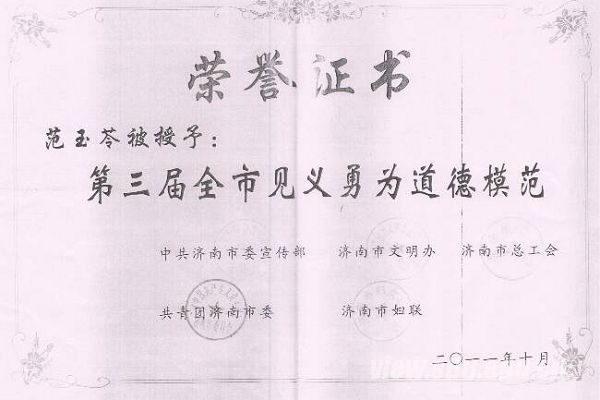 荣誉证书
范玉苓被授予：
第三届全市见义勇为道德模范
中共济南市委宣传部 济南市文明办 济南市总工会
共青团济南市委 济南市妇联
二〇一一年十月